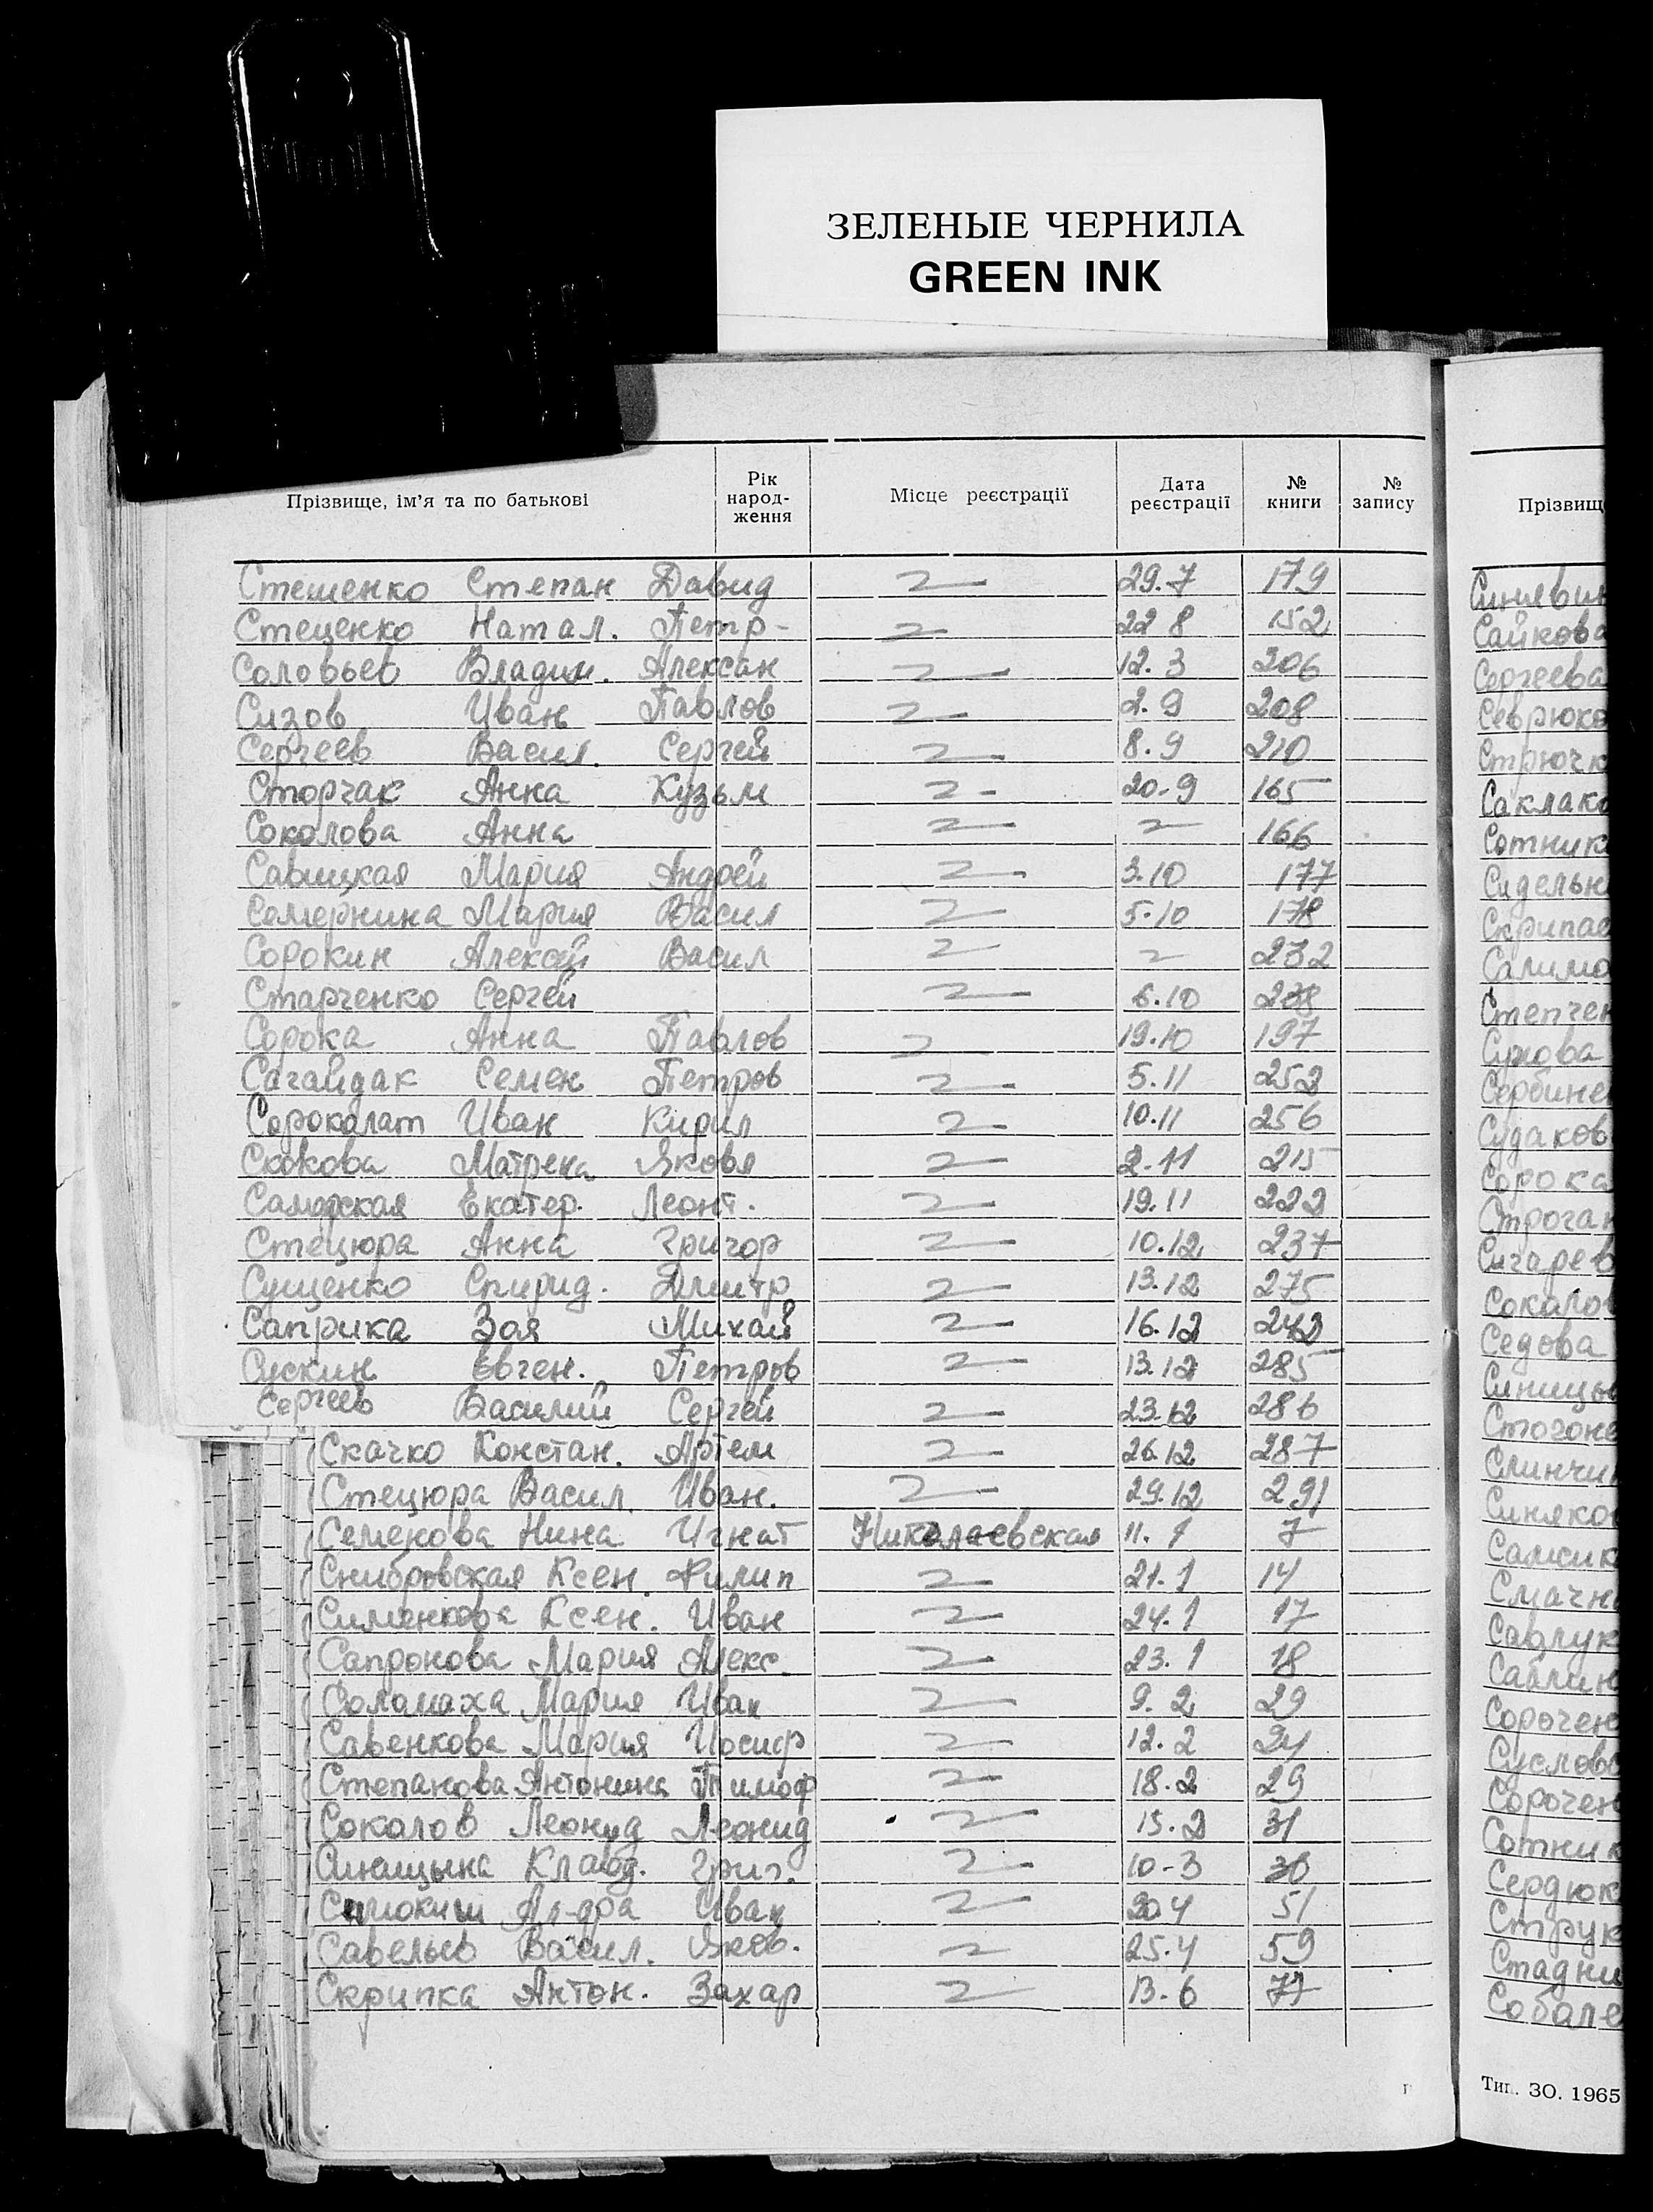 ЗЕЛЕНЫЕ ЧЕРНИЛА
GREEN INK
Прізвище, ім’я та по батькові Рік народ- ження Місце реєстрації Дата реєстрації № книги № запису
Стешенко Степан Давид 29.7 179
Стеценко Натал. Петр- 22 8 152
Соловьев Владим. Алексан 12.3 206
Сизов Иван Павлов 2.9 208
Сергеев Васил. Сергей 8.9 210
Сторчак Анна Кузьм 20-9 165
Соколова Анна 166
Савицкая Мария Андрей 3.10 177
Семернина Мария Васил 5.10 178
Сорокин Алексей Васил 232
Старченко Сергей 6.10
Сорока Анна Павлов 19.10 197
Сагайдак Семен Петров 5.11 252
Сорокалат Иван Кирил 10.11 256
Скокова Матрена Яковл 2.11 215
Екатер. Леонт. 19.11 222
Стецюра Анна Григор 10.12 237
Сущенко Спирид. Дмитр 13.12 275
Саприка Зоя Михай 16.12 242
Сускин Евген. Петров 13.12 285
Сергеев Василий Сергей 23.12 286
Скачко Констан. Артем 26.12 287
Стецюра Васил. Иван. 29.12 291
Семенова Нина Игнат Николаевская 11.1 7
Ксен. Филип 21.1 14
Сименкова Ксен. Иван 24.1 17
Сапронова Мария Алекс. 23.1 18
Соломаха Мария Иван 9.2 29
Савенкова Мария Иосиф 12.2 24
Степанова Антонина Тимоф 18.2 29
Соколов Леонид Леонид 15.2 31
Синицына Клавд. Григ. 10-3
Ал-дра Иван 20 4 51
Савельев Васил. Яков. 25.4 59
Скрипка Антон. Захар 13.6 77
Прізвищ
Синявин
Сайкова
Сергеева
Севрюко
Стрючк
Саклако
Сотник
Сидельн
Скрипа
Салимо
Степчен
Сербине
Судаков
Сорока
Строган
Сигарев
Соколов
Седова
Синицы
Стогоне
Слинчи
Синяко
Смачн
Савлук
Саблин
Сорочен
Суслова
Сорочен
Сотник
Сердюк
Струк
Стадни
Собале
Тип. ЗО. 1965